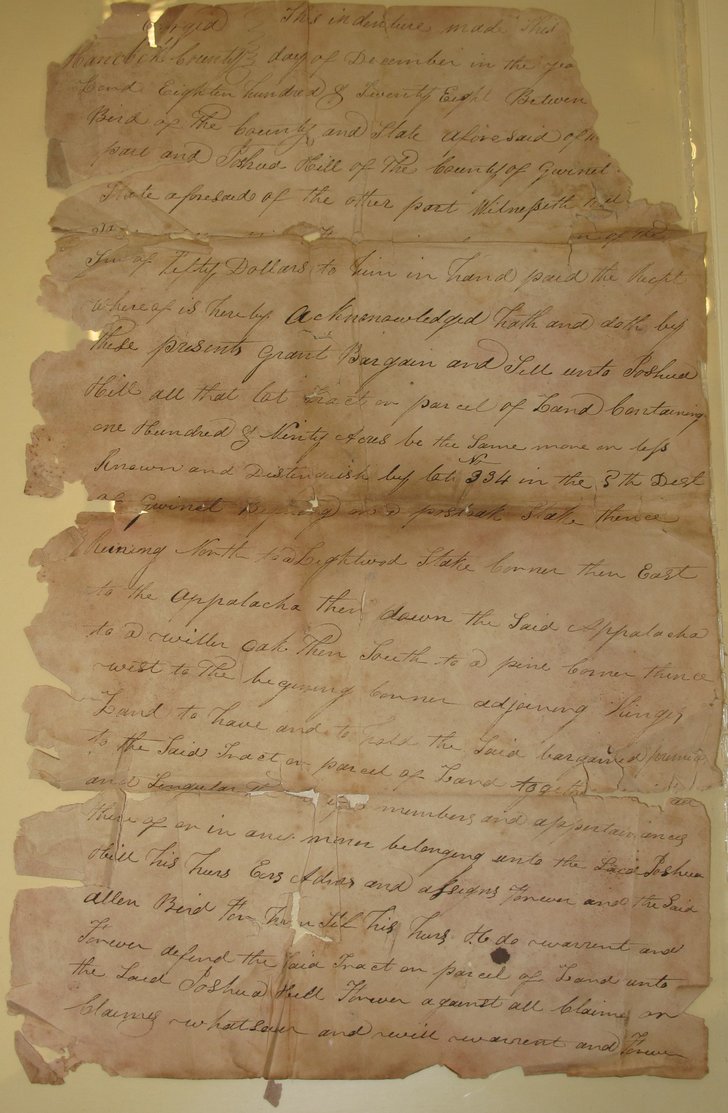 This indenture made This
Hancock County day of December in the yea
Lord Eighteen hundred & Twenty Eight Between
Bird of The County and State aforesaid of
part and Joshua Hill of The County of Gwinet
State aforesaid of the other part Witnesseth that
of the
Sum of fifty Dollars to him in hand paid the
whereof is here by acknonowledged hath and doth by
these presents Grant Bargain and Sell unto Joshua
Hill all that lot Tract or parcel of Land Containing
one Hundred & Ninty Acres be the Same more or less
Known and Destinguish by lot No 334 in the 5th Dest
of Gwinet on a postoak Stake thence
Runing North to a Lightwod Stake Corner then East
to the Appalacha then down the Said Appalacha
to a willer oak Then South to a pine Corner thence
west to The begining Corner adjoining
Land to have and to hold the Said bargained
to the Said Tract or parcel of Land together all
and Singular members and appertainances
there of or in any maner belonging unto the Said Joshua
Hill his heirs Exrs Admrs and assigns forever and the Said
allen Bird For his heirs do warrent and
Forever defend the Said Tract or parcel of Land unto
the Said Joshua Hill Forever against all Claime or
Claimes whatsover and will warrent and Forever